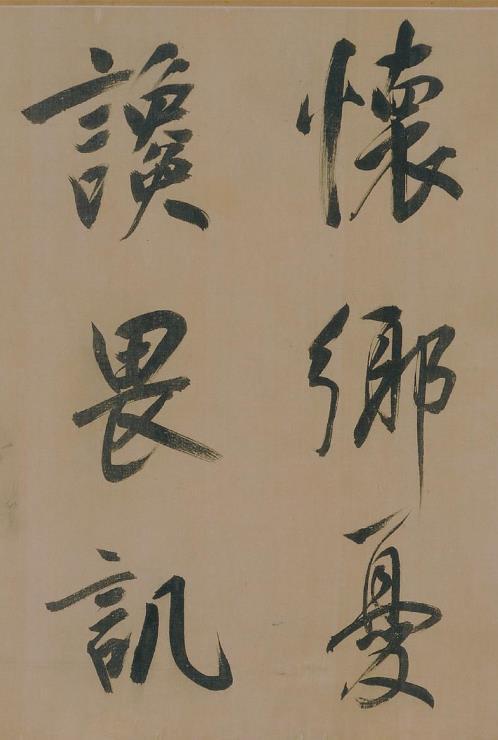 懷鄉憂
讒畏譏